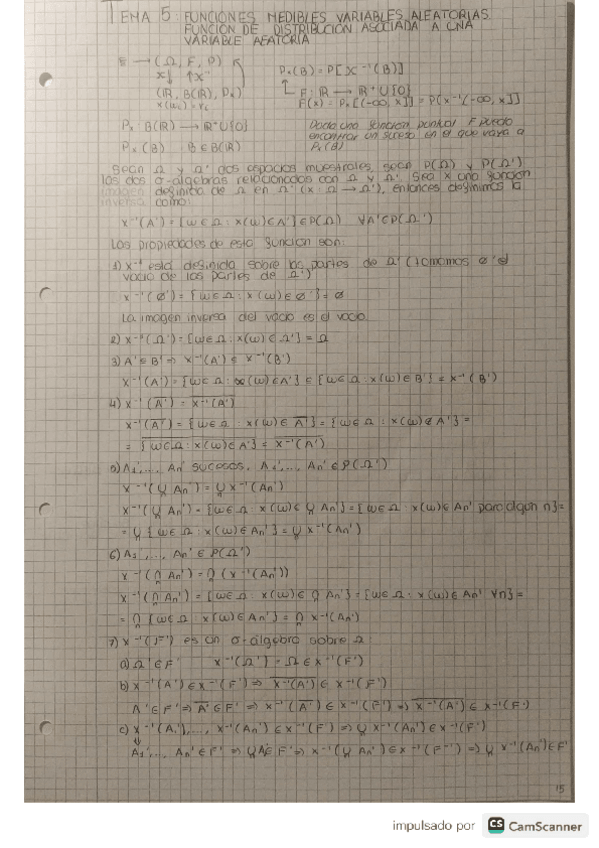 TEMA 5: FUNCIONES MEDIBLES VARIABLES ALEATORIAS.
FUNCIÓN DE DISTRIBUCIÓN ASOCIADA A UNA
VARIABLE AEATORIA
E → (Ω, F, P)
x↓ ↑x⁻¹
(ℝ, B(ℝ), Pₓ)
Pₓ(B) = P[X⁻¹(B)]
F: ℝ → ℝ⁺U{0}
F(x) = Pₓ[(-∞, x]] = P[x⁻¹(-∞, x]]
Pₓ: B(ℝ) → ℝ⁺U{0}
Pₓ(B) B∈B(ℝ)
Dada una función puntual F puedo
encontrar un suceso en el que vaya a
Pₓ(B)
Sean Ω y Ω' dos espacios muestrales, sean P(Ω) y P(Ω')
las dos σ-algebras relacionadas con Ω y Ω'. Sea X una función
imagen definida de Ω en Ω' (x: Ω → Ω'), entonces definimos la
inversa como:
x⁻¹(A') = {w∈Ω : x(w)∈A'} ∈ P(Ω) ∀A'∈P(Ω')
Las propiedades de esta función son:
1) x⁻¹ está definida sobre las partes de Ω' (tomamos ø' el
vacío de las partes de Ω')
x⁻¹(ø') = {w∈Ω : x(w)∈ø'} = ø
La imagen inversa del vacío es el vacío.
2) x⁻¹(Ω') = {w∈Ω : x(w)∈Ω'} = Ω
3) A'⊆B' ⇒ x⁻¹(A') ⊆ x⁻¹(B')
x⁻¹(A') = {w∈Ω : x(w)∈A'} ⊆ {w∈Ω : x(w)∈B'} = x⁻¹(B')
4) x⁻¹(A̅'̅) = x̅⁻̅¹̅(̅A̅'̅)̅
x⁻¹(A̅'̅) = {w∈Ω : x(w)∈A̅'̅} = {w∈Ω : x(w)∉A'} =
= {̅w̅∈̅Ω̅:̅x̅(̅w̅)̅∈̅A̅'̅}̅ = x̅⁻̅¹̅(̅A̅'̅)̅
5) A₁',..., Aₙ' sucesos, A₁',..., Aₙ'∈P(Ω')
x⁻¹(⋃ₙ Aₙ') = ⋃ₙ x⁻¹(Aₙ')
x⁻¹(⋃ₙ Aₙ') = {w∈Ω : x(w)∈⋃ₙ Aₙ'} = {w∈Ω : x(w)∈Aₙ' para algún n} =
= ⋃ₙ {w∈Ω : x(w)∈Aₙ'} = ⋃ₙ x⁻¹(Aₙ')
6) A₁',..., Aₙ'∈P(Ω')
x⁻¹(⋂ₙ Aₙ') = ⋂ₙ (x⁻¹(Aₙ'))
x⁻¹(⋂ₙ Aₙ') = {w∈Ω : x(w)∈⋂ₙ Aₙ'} = {w∈Ω : x(w)∈Aₙ' ∀n} =
= ⋂ₙ {w∈Ω : x(w)∈Aₙ'} = ⋂ₙ x⁻¹(Aₙ')
7) x⁻¹(F') es un σ-algebra sobre Ω
a) Ω'∈F' x⁻¹(Ω') = Ω∈x⁻¹(F')
b) x⁻¹(A')∈x⁻¹(F') ⇒ x̅⁻̅¹̅(̅A̅'̅)̅ ∈ x⁻¹(F')
A'∈F' ⇒ A̅'̅∈F' ⇒ x⁻¹(A̅'̅)∈x⁻¹(F') ⇒ x̅⁻̅¹̅(̅A̅'̅)̅ ∈ x⁻¹(F')
c) x⁻¹(A₁'),..., x⁻¹(Aₙ')∈x⁻¹(F') ⇒ ⋃ₙ x⁻¹(Aₙ')∈x⁻¹(F')
A₁',..., Aₙ'∈F' ⇒ ⋃ₙ Aₙ'∈F' ⇒ x⁻¹(⋃ₙ Aₙ')∈x⁻¹(F') ⇒ ⋃ₙ x⁻¹(Aₙ')∈F'
15
impulsado por CS CamScanner